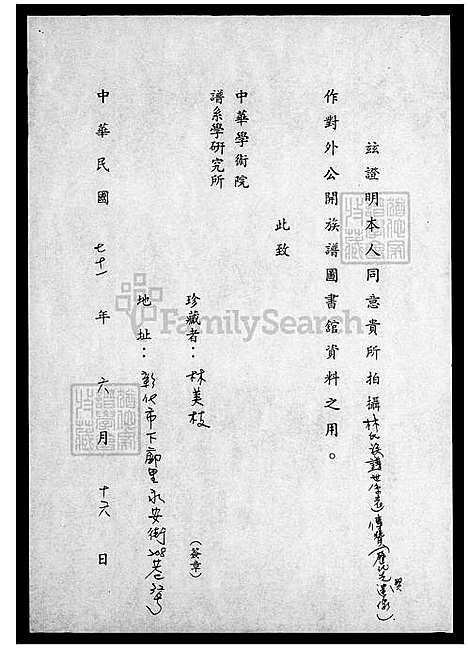 茲證明本人同意貴所拍攝林氏族譜世系
作對外公開族譜圖書館資料之用。
此致
中華學術院
譜系學研究所
珍藏者：林美枝
(簽章)
地址：彰化市下廍里永安街208巷32号
中華民國七十一年六月十六日
FamilySearch